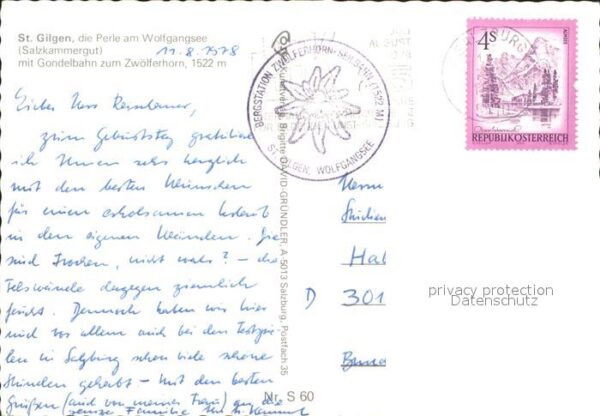 St. Gilgen, die Perle am Wolfgangsee
(Salzkammergut) 11.8.1978
mit Gondelbahn zum Zwölferhorn, 1522 m
Lieber Herr
zum Geburtstag gratuliere
ich Ihnen sehr herzlich
mit den besten Wünschen
für einen erholsamen
in den eigenen Wänden. Sie
sind trocken, nicht wahr? – die
Felswände dagegen ziemlich
feucht. Dennoch haben wir hier
und vor allem auch bei den Festspie-
len in Salzburg schon viele schöne
Stunden gehabt – Mit den besten
Grüßen (und von meiner Frau) an die
ganze Familie Ihr
BERGSTATION ZWÖLFERHORN-SEILBAHN (1522 M)
ST. GILGEN, WOLFGANGSEE
AUGUST
Brigitte DAVID-GRÜNDLER, A 5013 Salzburg, Postfach 35
Nr. S 60
4S
REPUBLIK ÖSTERREICH
Herrn
Hal
D 301
privacy protection
Datenschutz